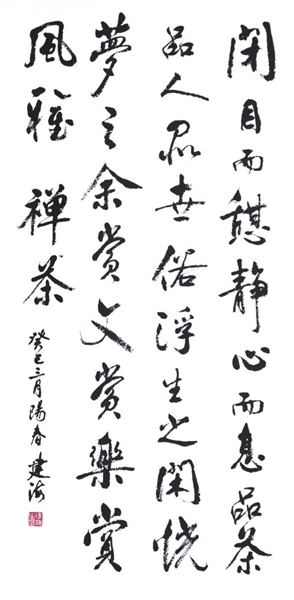 閉目而憇静心而息品茶
品人品世俗浮生之閑恍
夢之余賞文賞樂賞
風雅 禅茶
癸巳三月陽春 建海